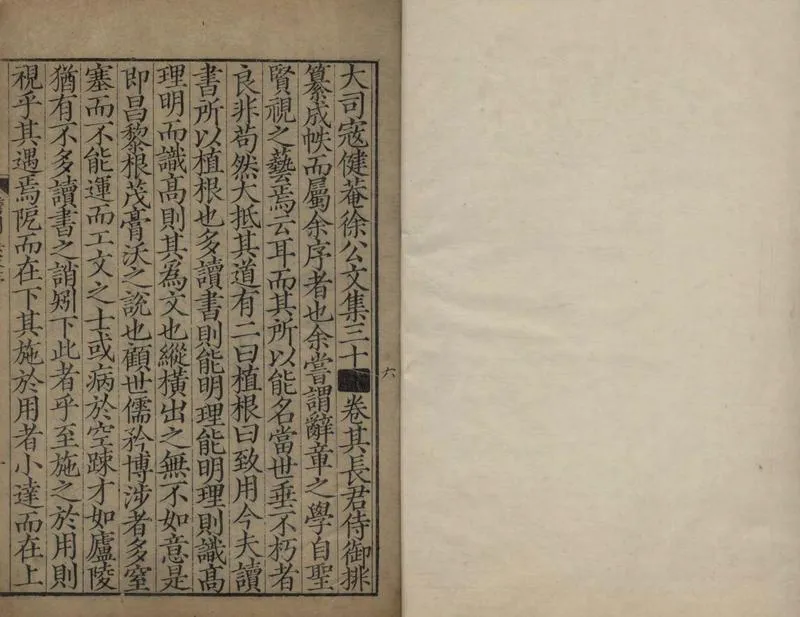 大司寇健菴徐公文集三十卷其長君侍御排
纂成帙而屬余序者也余嘗謂辭章之學自聖
賢視之藝焉云耳而其所以能名當世垂不朽者
良非苟然大抵其道有二曰植根曰致用今夫讀
書所以植根也多讀書則能明理能明理則識高
理明而識高則其為文也縱橫出之無不如意是
即昌黎根茂膏沃之說也顧世儒矜博涉者多窒
塞而不能運而工文之士或病於空踈才如廬陵
猶有不多讀書之誚矧下此者乎至施之於用則
視乎其遇焉阨而在下其施於用者小達而在上
六